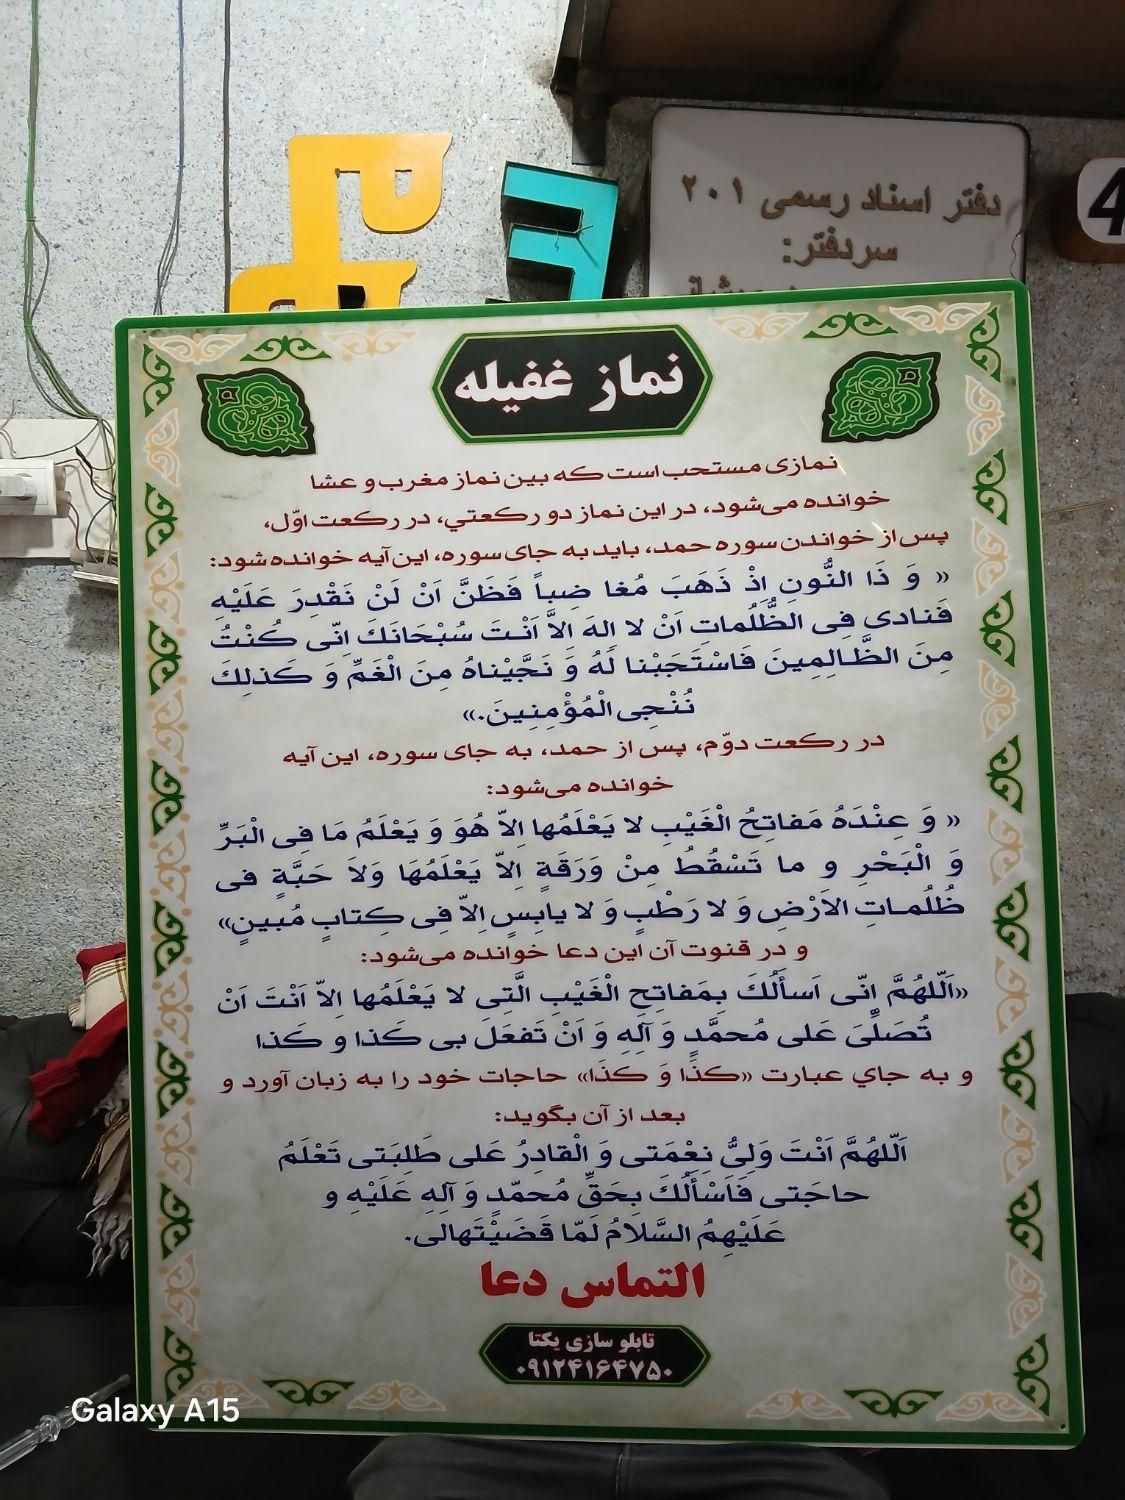 دفتر اسناد رسمی ۲۰۱
سردفتر:
4
نماز غفیله
نمازی مستحب است که بین نماز مغرب و عشا
خوانده می‌شود، در این نماز دو رکعتي، در رکعت اوّل،
پس از خواندن سوره حمد، باید به جای سوره، این آیه خوانده شود:
« وَ ذَا النُّونِ اِذْ ذَهَبَ مُغا ضِباً فَظَنَّ اَنْ لَنْ نَقْدِرَ عَلَیْهِ
فَنادی فِی الظُّلُماتِ اَنْ لا اِلهَ اِلاَّ اَنْتَ سُبْحَانَكَ اِنّی کُنْتُ
مِنَ الظَّالِمِینَ فَاسْتَجَبْنا لَهُ وَ نَجَّیْناهُ مِنَ الْغَمِّ وَ کَذلِكَ
نُنْجِی الْمُؤْمِنِینَ.»
در رکعت دوّم، پس از حمد، به جای سوره، این آیه
خوانده می‌شود:
« وَ عِنْدَهُ مَفاتِحُ الْغَیْبِ لا یَعْلَمُها اِلاّ هُوَ وَ یَعْلَمُ مَا فِی الْبَرِّ
وَ الْبَحْرِ و ما تَسْقُطُ مِنْ وَرَقَةٍ اِلاّ یَعْلَمُهَا وَلاَ حَبَّةٍ فی
ظُلُمـاتِ الاَرْضِ وَ لا رَطْبٍ وَ لا یابِسٍ اِلاّ فِی کِتابٍ مُبینٍ»
و در قنوت آن این دعا خوانده می‌شود:
«اَللّهُمَّ اِنّی اَسأَلُكَ بِمَفاتِحِ الْغَیْبِ الَّتِی لا یَعْلَمُها اِلاّ اَنْتَ اَنْ
تُصَلِّیَ عَلی مُحمَّدٍ وَ آلِهِ وَ اَنْ تَفعَلَ بی کَذا و کَذا
و به جاي عبارت «کذَا وَ کذَا» حاجات خود را به زبان آورد و
بعد از آن بگوید:
اَللّهُمَّ اَنْتَ وَلِیُّ نِعْمَتی وَ الْقادِرُ عَلی طَلِبَتی تَعْلَمُ
حاجَتی فَاَسْأَلُكَ بِحَقِّ مُحمّدٍ وَ آلِهِ عَلَیْهِ و
عَلَیْهِمُ السَّلامُ لَمّا قَضَیْتَهالی.
التماس دعا
تابلو سازی یکتا
۰۹۱۲۴۱۶۴۷۵۰
Galaxy A15